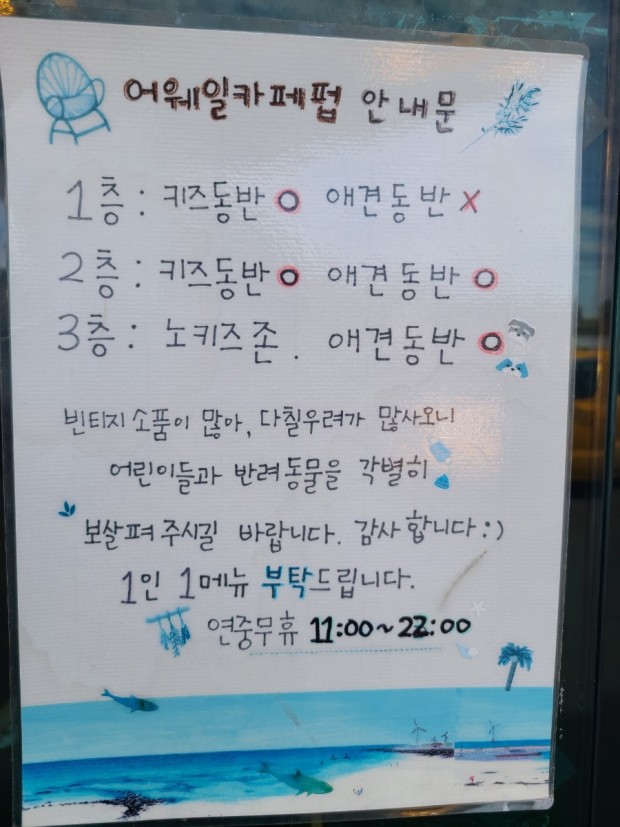 어웨일카페펍 안내문
1층 : 키즈동반 O 애견동반 X
2층 : 키즈동반 O 애견동반 O
3층 : 노키즈존 . 애견동반 O
빈티지 소품이 많아, 다칠우려가 많사오니
어린이들과 반려동물을 각별히
보살펴 주시길 바랍니다. 감사합니다:)
1인 1메뉴 부탁드립니다.
연중무휴 11:00~22:00